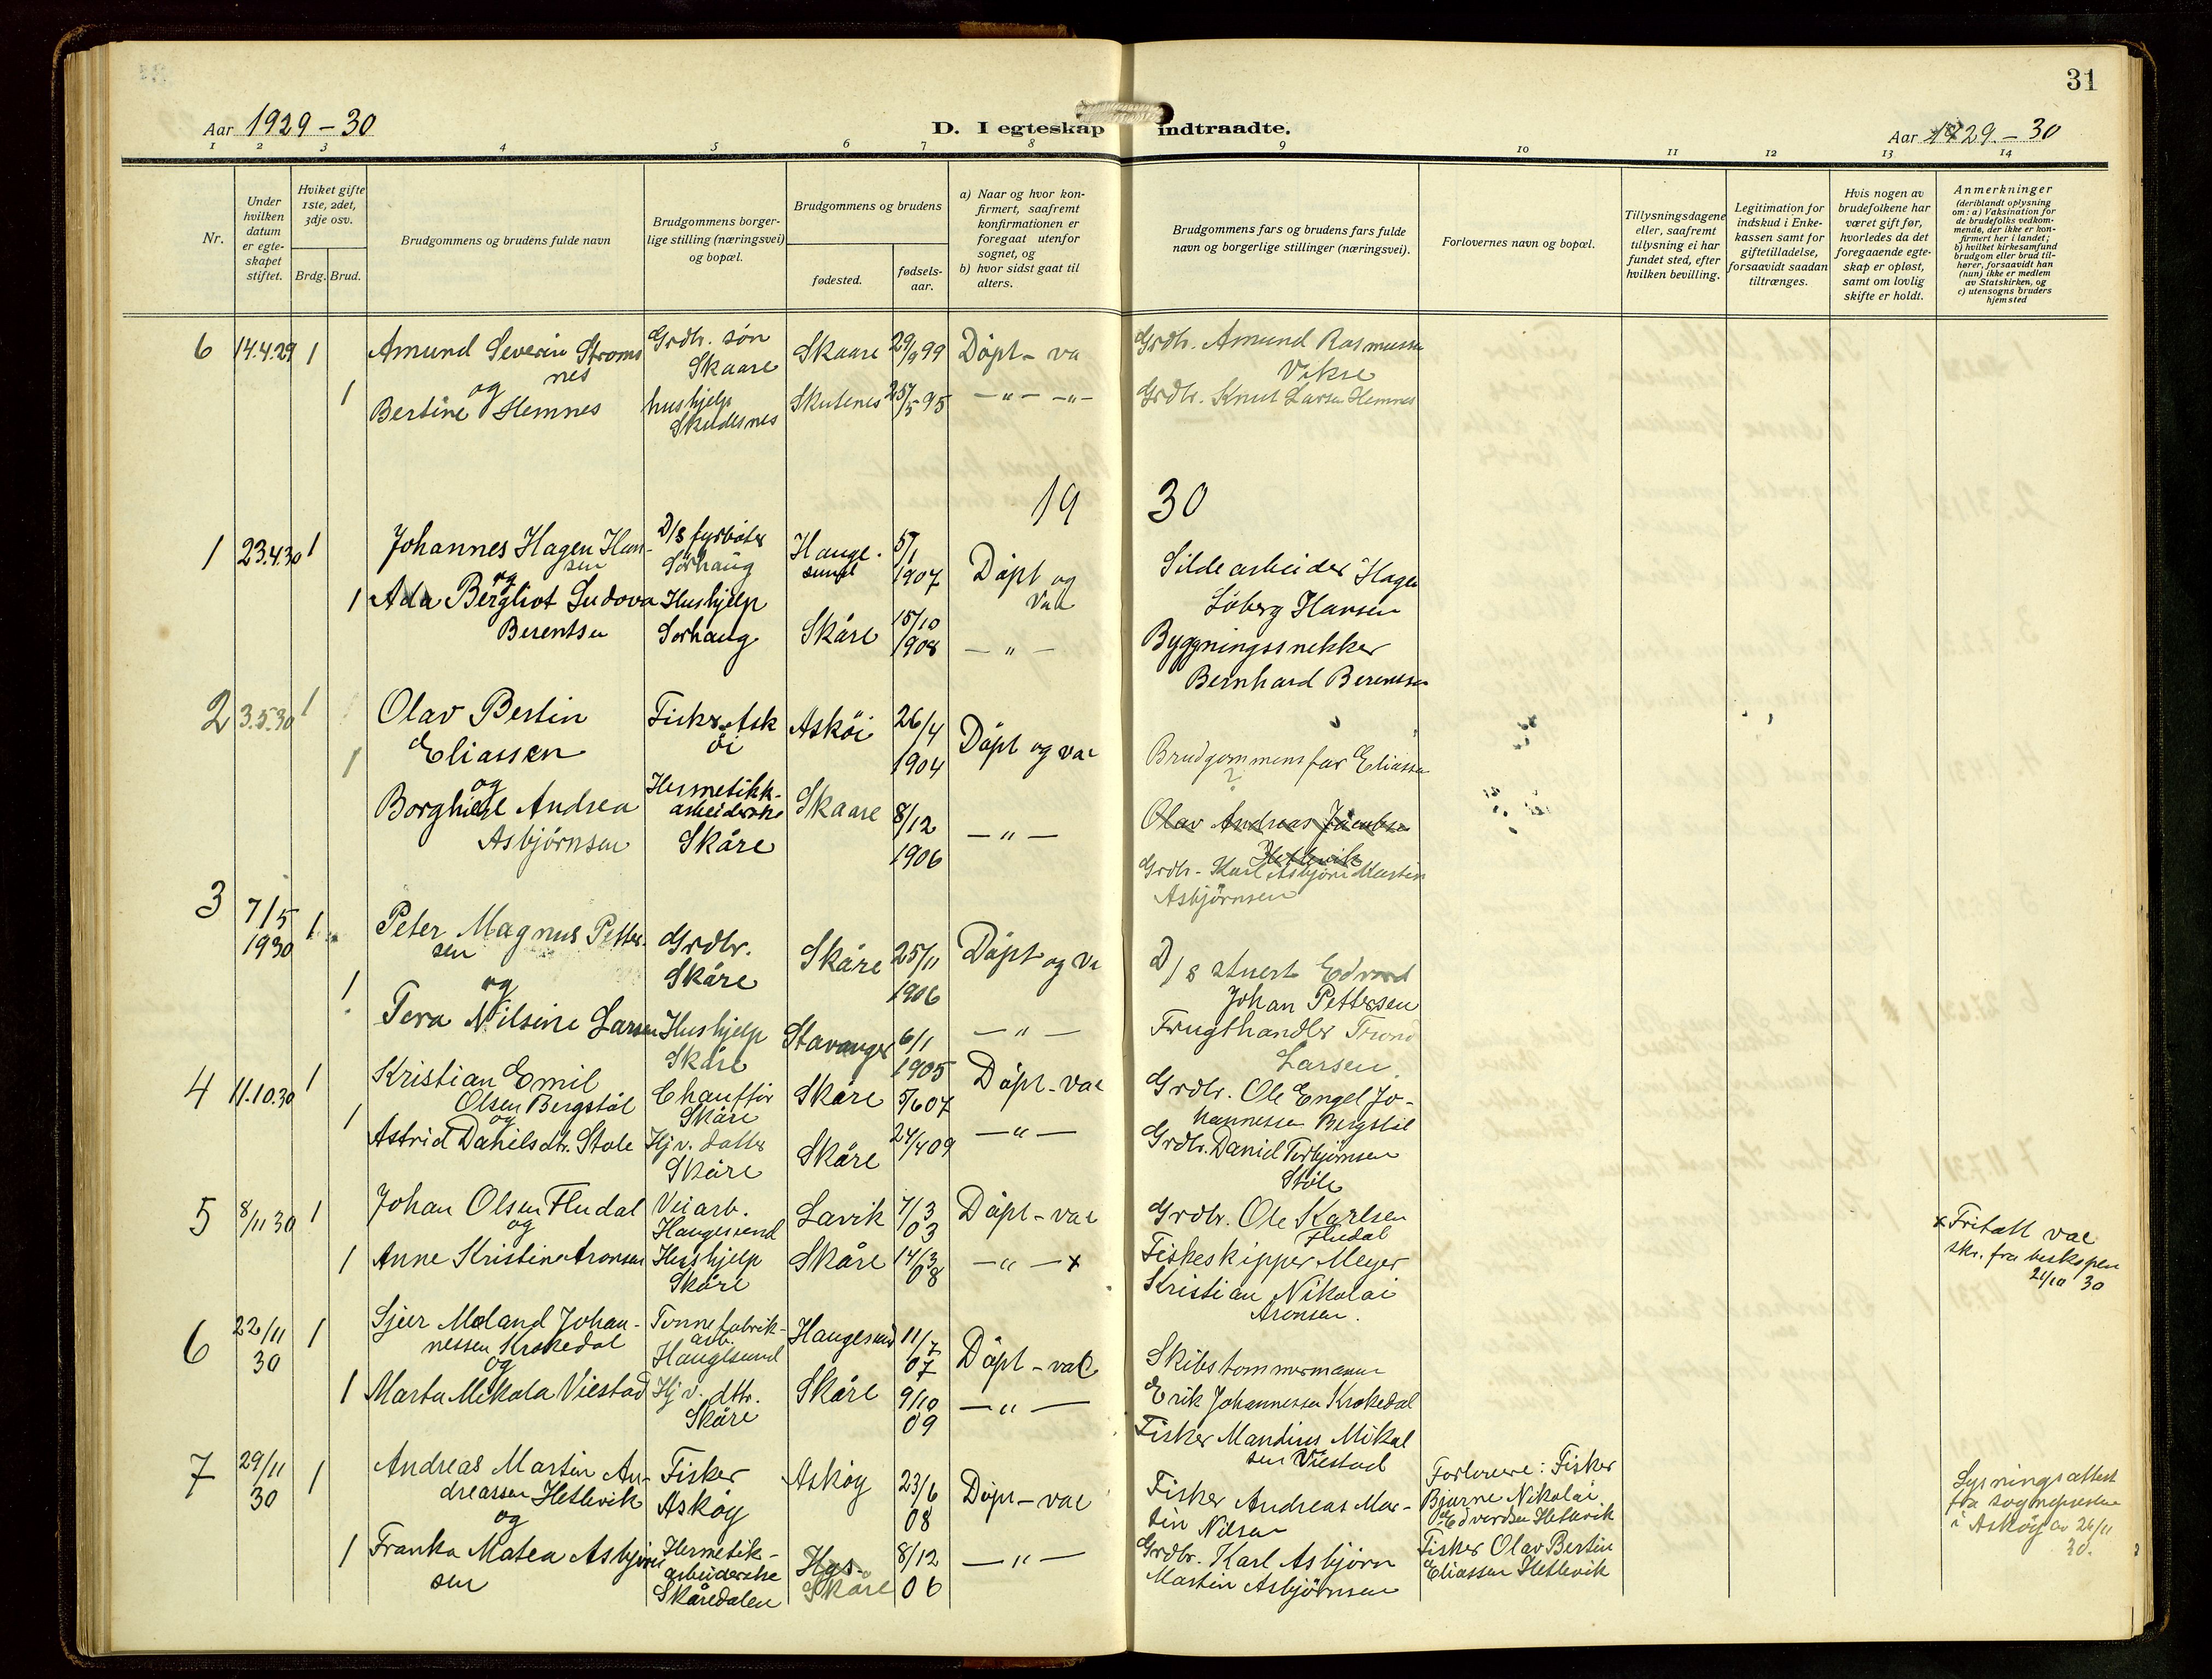 31
Aar 1929-30
D. I egteskap indtraadte.
Aar 1929.-30
1 2 3 4 5 6 7 8 9 10 11 12 13 14
Nr.
Under hvilken datum er egte-skapet stiftet.
Hviket gifte 1ste, 2det, 3dje osv.
Brdg. Brud.
Brudgommens og brudens fulde navn
Brudgommens borger-lige stilling (næringsvei) og bopæl.
Brudgommens og brudens
fødested.
fødsels-aar.
a) Naar og hvor kon-firmert, saafremt konfirmationen er foregaat utenfor sognet, og
b) hvor sidst gaat til alters.
Brudgommens fars og brudens fars fulde navn og borgerlige stillinger (næringsvei).
Forlovernes navn og bopæl.
Tillysningsdagene eller, saafremt tillysning ei har fundet sted, efter hvilken bevilling.
Legitimation for indskud i Enke-kassen samt for giftetilladelse, forsaavidt saadan tiltrænges.
Hvis nogen av brudefolkene har været gift før, hvorledes da det foregaaende egte-skap er opløst, samt om lovlig skifte er holdt.
Anmerkninger
(deriblandt oplysning om: a) Vaksination for de brudefolks vedkom-mende, der ikke er kon-firmert her i landet; b) hvilket kirkesamfund brudgom eller brud til-hører, forsaavidt han (hun) ikke er medlem av Statskirken, og c) utensogns bruders hjemsted
6 14.4.29 1 Amund Severin Stroms
nes
og
Grdbr. søn
Skaare
Skaare 29/9 99 Döpt - va
Grdbr. Amund Rasmussen
Vikse
1 Bertine Hemnes
hushjelp
Skudesnes
Skutenes 25/5 95 - " - - " -
Grdbr. Knut Larsen Hemnes
1930
1 23.4.30 1 Johannes Hagen Han-
sen
og
D/S fyrböter
Sörhaug
Hauge-
sund
5/1
1907
Döpt og
vac
Sildearbeider Hagen
Löberg Hansen
1 Ada Bergliot Ludova
Berentsen
Hushjelp
Sörhaug
Skåre
15/10
1908
- " -
Byggningssnekker
Bernhard Berentsen
2 3.5.30 1 Olav Bertin
Eliassen
og
Fisker Ask
öi
Asköi
26/4
1904
Döpt og vac
Brudgommens far Eliassen
?
1 Borghild Andrea
Asbjörnsen
Hermetikk-
arbeiderske
Skåre
Skaare
8/12
1906
- " -
Olav Andreas Jacobsen
Hetlevik
Grdbr. Karl Asbjörn Martin
Asbjörnsen
3 7/5
1930
1 Peter Magnus Petter-
sen
og
Grdbr.
Skåre
Skåre
25/11
1906
Döpt og va
D/S stuert Edvard
Johan Pettersen
1 Tora Nilsine Larsen
Hushjelp
Skåre
Stavanger
6/1
1905
- " -
Frugthandler Trond
Larsen.
4 11.10.30 1 Kristian Emil
Olsen Bergstöl
og
Chafför
Skåre
Skåre 5/6 07 Döpt - vac
Grdbr. Ole Engel Jo-
hannessen Bergstöl
1 Astrid Danielsdtr. Stole
Hj v. datter
Skåre
Skåre 24/4 09 - " -
Grdbr. Daniel Torbjörnsen
Stöle
5 8/11 30 1 Johan Olsen Fludal
og
Veiarb.
Haugesund
Lavik 7/3
03
Döpt - vac
Grdbr. Ole Karlsen
Fludal
1 Anne Kristine Aronsen
Hushjelp
Skåre
Skåre 14/3
08
- " - x
Fiskeskipper Meyer
Kristian Nikolai
Aronsen.
x Fritatt vac
skr. fra biskopen
21/10 30
6 22/11
30
1 Sjur Moland Johan-
nessen Krokedal
og
Tonnefabrik-
arb.
Haugesund
Haugesund 11/7
07
Döpt - vac
Skibstommermann
Erik Johannessen Krokedal
1 Marta Mikala Viestad
Hj v. dttr.
Skåre
Skåre 9/10
09
- " -
Fisker Mandius Mikal
sen Viestad
7 29/11
30
1 Andreas Martin An-
dreassen Hetlevik
og
Fisker
Asköy
Asköy 23/6
08
Döpt - vac
Fisker Andreas Mar-
tin Nilsen
Forlovere: Fisker
Bjarne Nikolai
Edvardsen Hetlevik
Lysningsattest
fra sognepresten
i Asköy av 26/11
30.
1 Franka Matea Asbjörn
sen
Hermetik-
arbeiderske
Skåredalen
Hgs.
Skåre
8/12
06
- " -
Grdbr. Karl Asbjörn
Martin Asbjörnsen
Fisker Olav Bertin
Eliassen Hetlevik